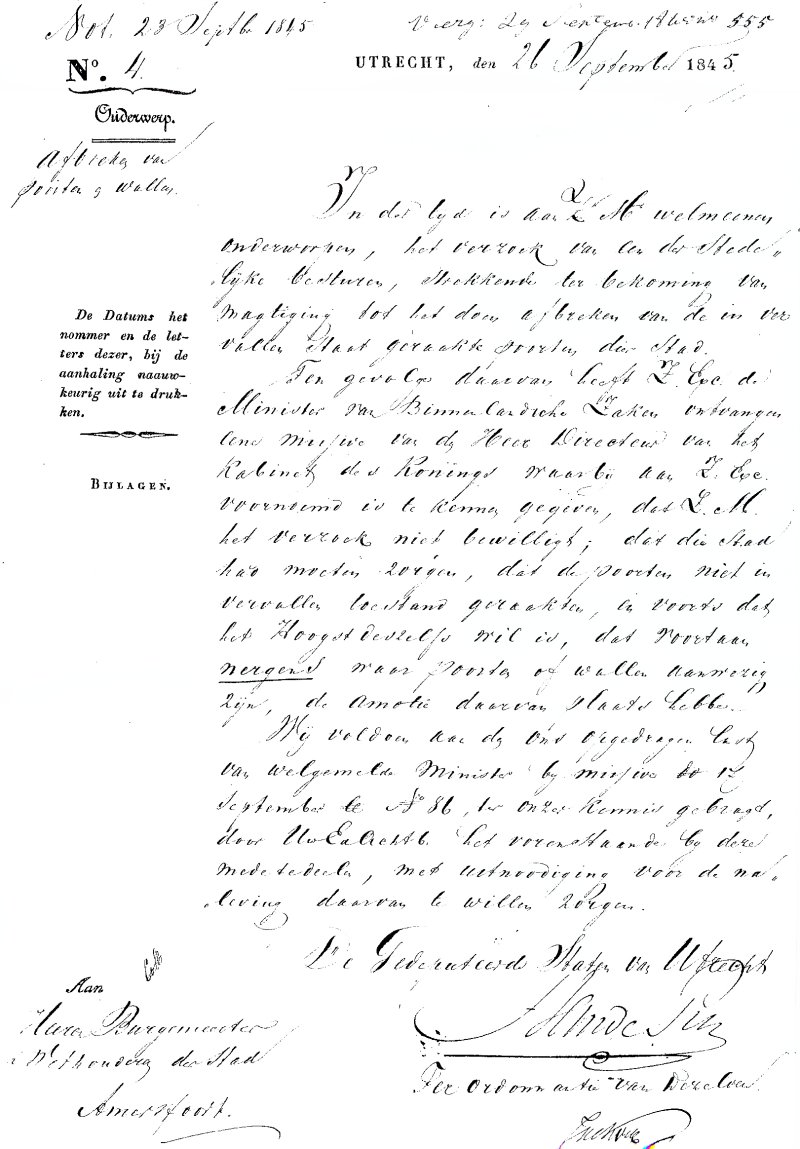 Not. 23 Septbr 1845
555
No. 4.
UTRECHT, den 26 September 1845.
Onderwerp.
Afbreken van
poorten & wallen.
De Datums het
nommer en de let-
ters dezer, bij de
aanhaling naauw-
keurig uit te druk-
ken.
BIJLAGEN.
In der tyd is aan Z. M. welmeenen
onderworpen, het verzoek van een der Stede„
„lijke besturen, strekkende ter bekoming van
magtiging tot het doen afbreken van de in ver
vallen Staat geraakte poorten dier Stad.
Ten gevolge daarvan heeft Z. Exc. de
Minister van Binnenlandsche Zaken ontvangen
eene missive van den Heer Directeur van het
Kabinet des Konings waarbij aan Z. Exc.
voornoemd is te kennen gegeven, dat Z. M.
het verzoek niet bewilligt; dat die Stad
had moeten zorgen, dat de poorten niet in
vervallen toestand geraakten, en voorts dat
het Hoogstdeszelfs wil is, dat voortaan
nergens waar poorten of wallen aanwezig
zijn, de amotie daarvan plaats hebbe.
Wij voldoen aan den ons opgedragen last
van welgemelde Minister by missive do 17
September No 86, ter onzer kennis gebragt,
door UwEdAchtb. het vorenstaande by deze
mede te deelen, met uitnoodiging voor de na„
„leving daarvan te willen zorgen.
De Gedeputeerde Staten van Utrecht
Ter Ordonnantie van Dezelve.
Aan
Heeren Burgemeester
& Wethouderen der Stad
Amersfoort.